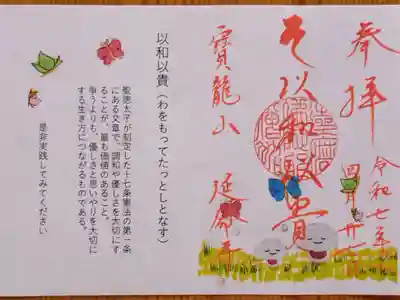 奉拝
令和七年
以和為貴
寶龍山
以和以貴（わをもってたっとしとなす）
聖徳太子が制定した十七条憲法の第一条
にある文章で、調和や優しさを大切にす
ることが、最も価値のあること。
争うよりも、優しさと思いやりを大切に
する生き方につながるものである。
是非実践してみてください